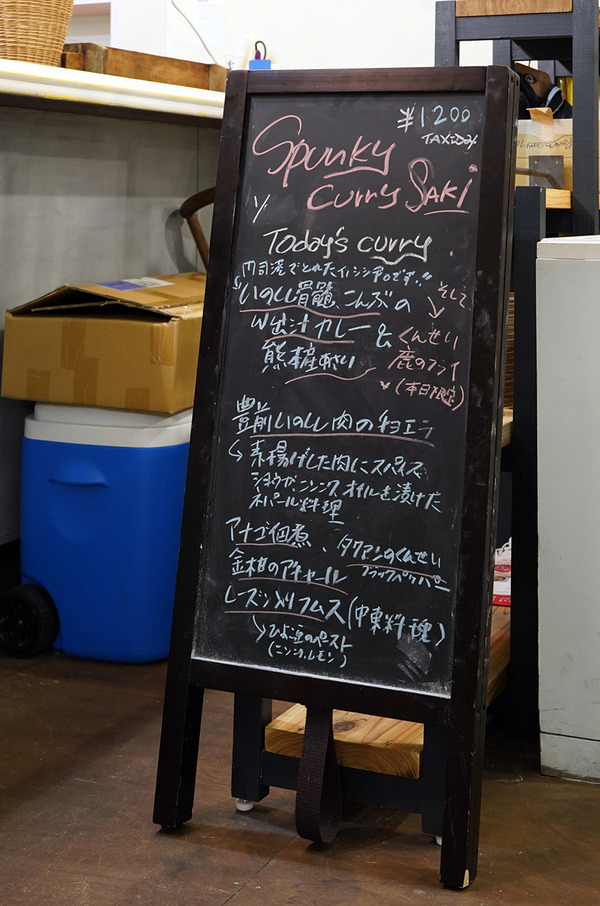 ¥1.200
TAX込み
Spunky
Curry SAKI
Today's curry
門司港でとれたイノシシです!!
いのしし骨髄、こんぶの
W出汁カレー &
そして
くんせい
鹿のフライ
(本日限定)
豊前いのしし肉のチョエラ
素揚げした肉にスパイス
ショウガ、ニンニク、オイルを漬けた
ネパール料理
アナゴ佃煮、タクアンのくんせい
ブラックペッパー
金柑のアチャール
レーズン入りフムス(中東料理)
ひよこ豆のペースト
(ニンニク、レモン)